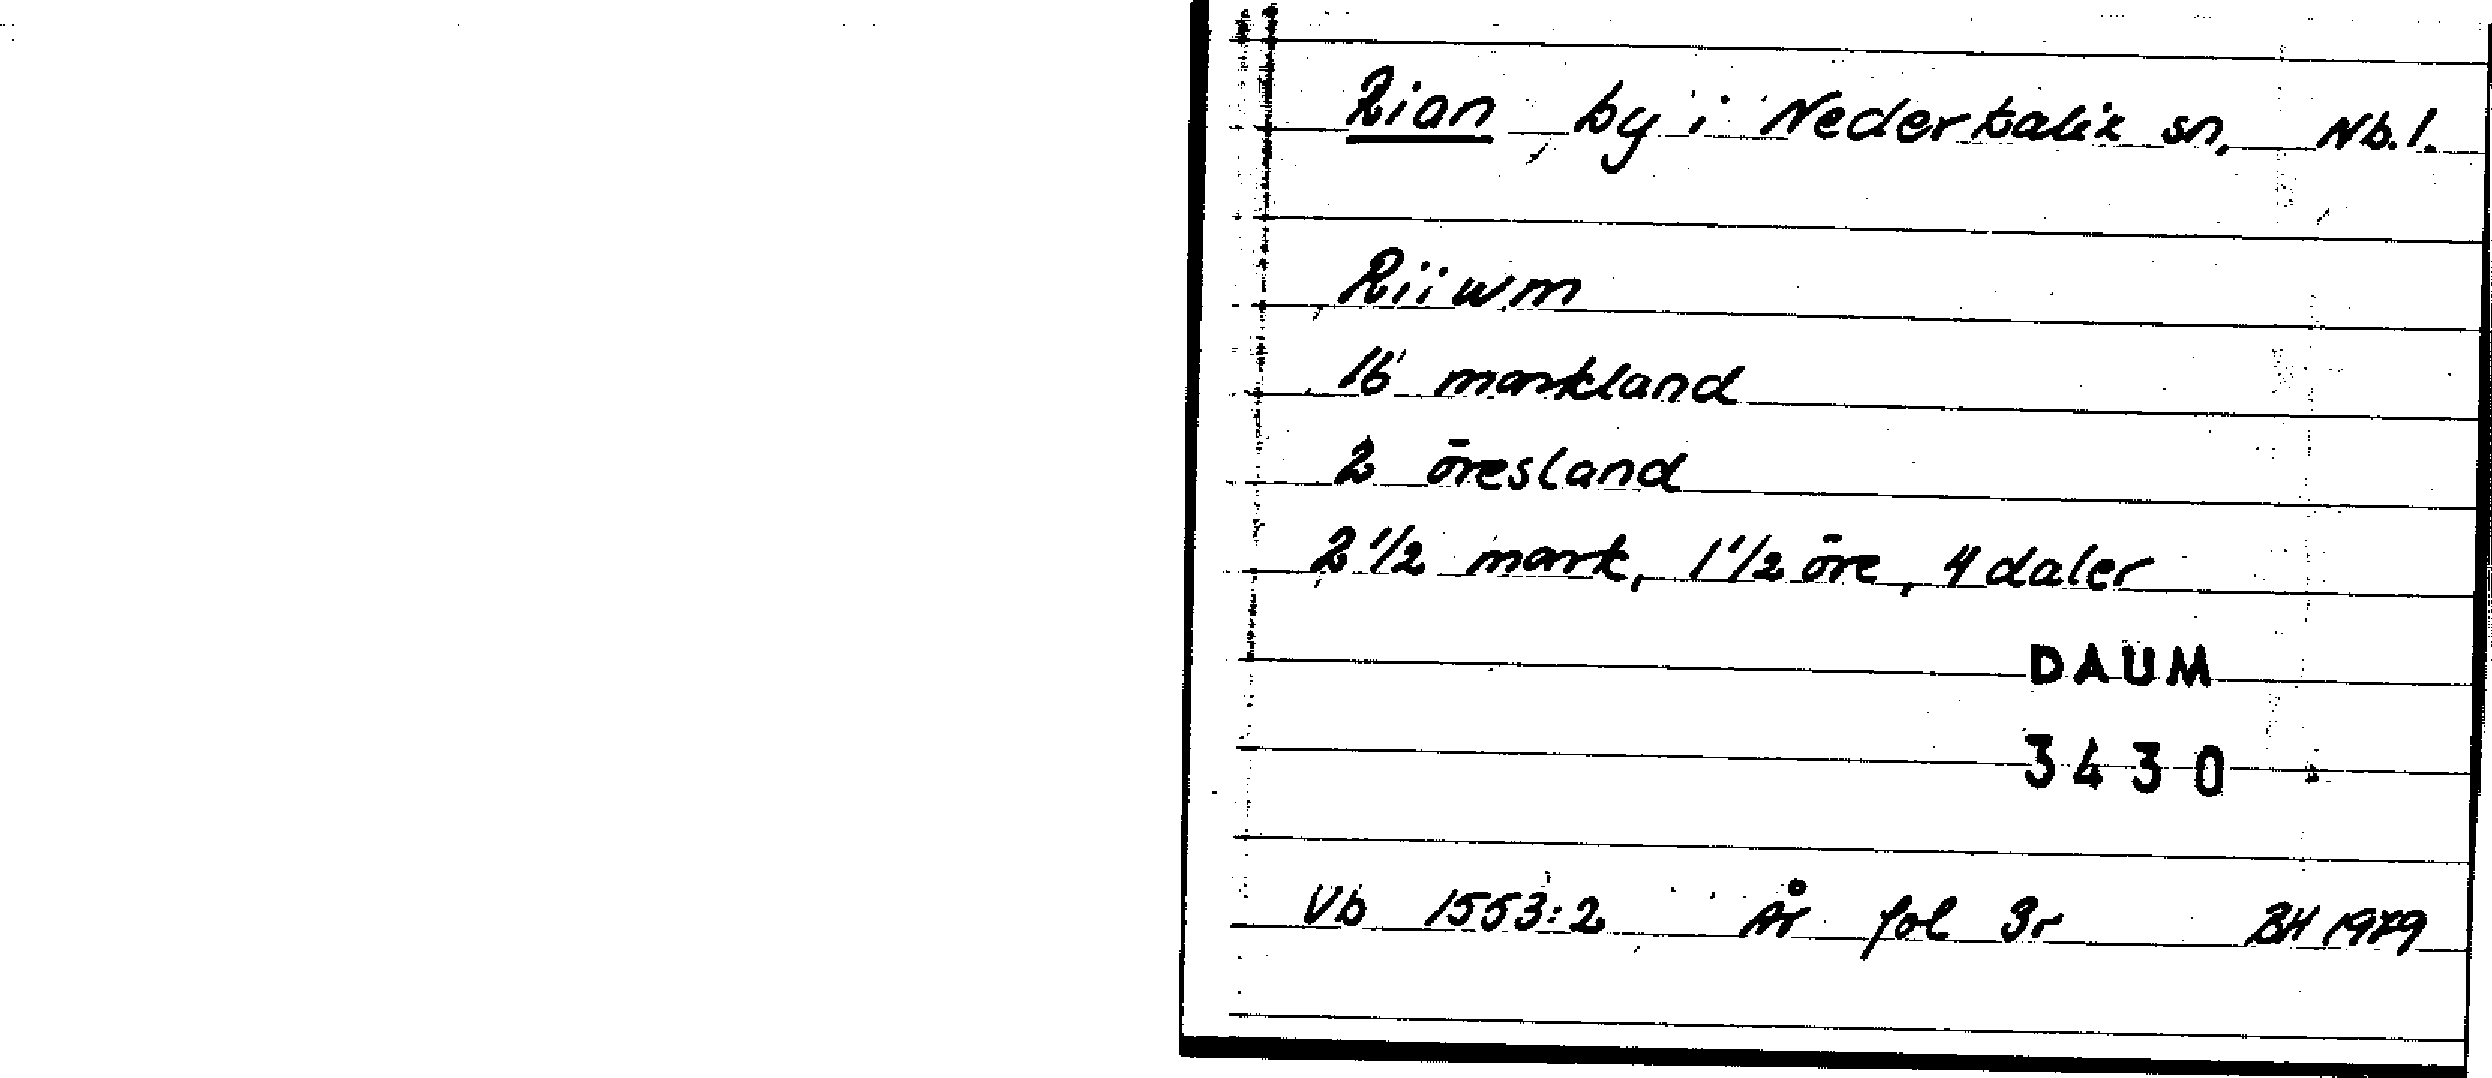 Rian by i Nederkalix sn, Nb.l.
Riiwm
16 markland
2 öresland
2 1/2 mark, 1 1/2 öre, 4 daler
DAUM
3430
Vb 1553:2 År fol 3r BH 1979